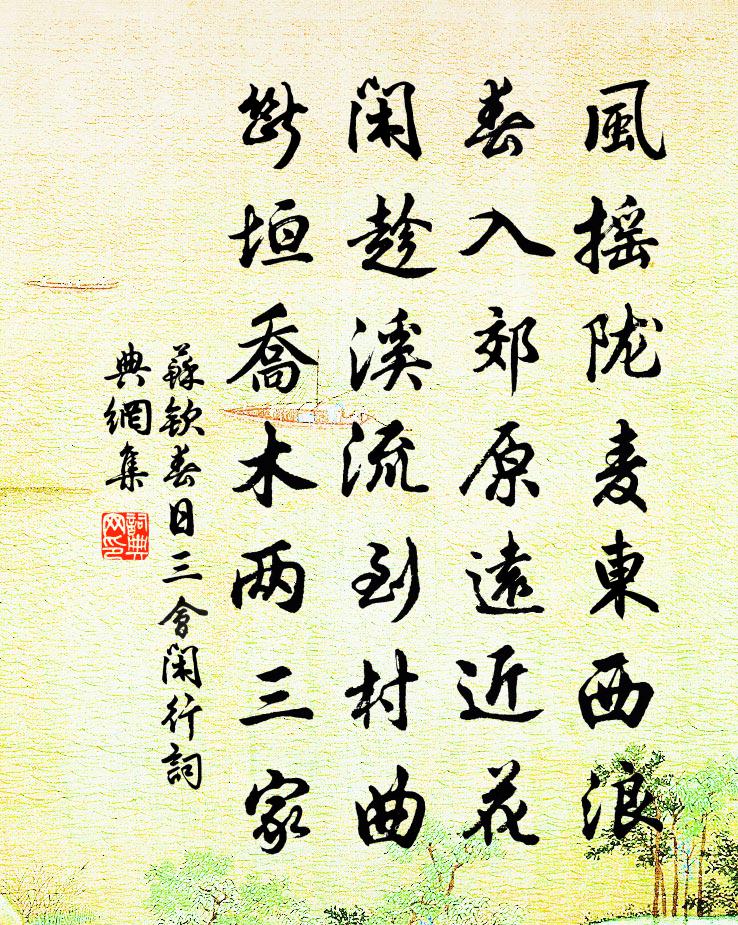 風摇陇麦東西浪
春入郊原遠近花
闲趁溪流到村曲
斷垣喬木两三家
蘇欽春日三會闲行詞
典網集
詞典
网印